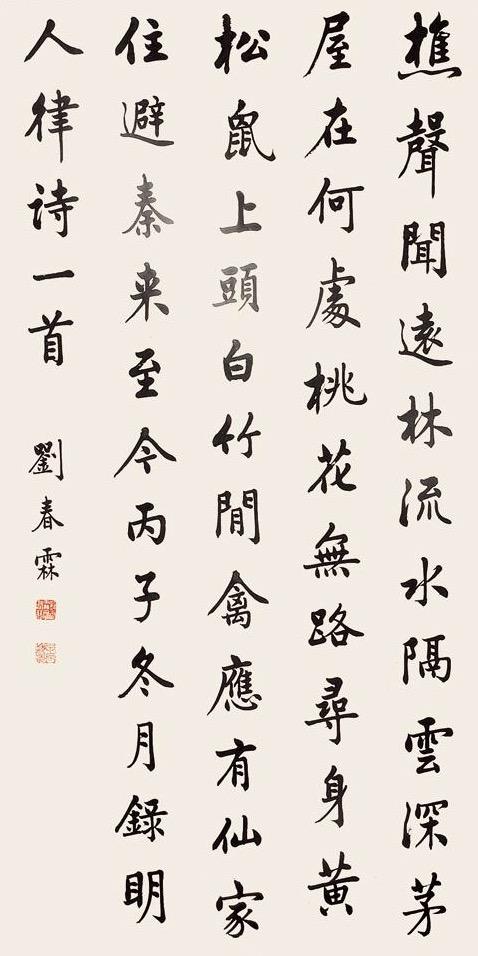 樵聲聞遠林流水隔雲深茅
屋在何處桃花無路尋身黃
松鼠上頭白竹閒禽應有仙家
住避秦来至今丙子冬月錄明
人律詩一首
劉春霖